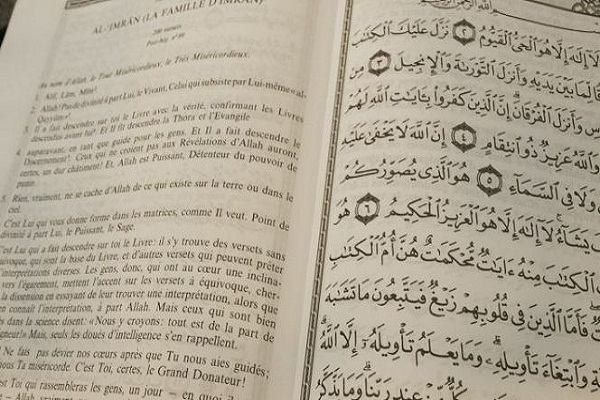 AL-'IMRÂN (LA FAMILLE D'IMRAN)
200 versets
Post-hég. n° 89
Au nom d'Allah, le Tout Miséricordieux, le Très Miséricordieux.
Alif, Lâm, Mîm.
2. Allah! Pas de divinité à part Lui, le Vivant, Celui qui subsiste par Lui-même «al-
Qayyûm».
3. Il a fait descendre sur toi le Livre avec la vérité, confirmant les Livres
descendus avant lui. Et Il fit descendre la Thora et l'Evangile
4. auparavant, en tant que guide pour les gens. Et Il a fait descendre le
Discernement. Ceux qui ne croient pas aux Révélations d'Allah auront,
certes, un dur châtiment! Et, Allah est Puissant, Détenteur du pouvoir de
punir.
5. Rien, vraiment, ne se cache d'Allah de ce qui existe sur la terre ou dans le
ciel.
C'est Lui qui vous donne forme dans les matrices, comme Il veut. Point de
divinité à part Lui, le Puissant, le Sage.
C'est Lui qui a fait descendre sur toi le Livre: il s'y trouve des versets sans
équivoque, qui sont la base du Livre, et d'autres versets qui peuvent prêter
d'interprétations diverses. Les gens, donc, qui ont au cœur une inclina-
vers l'égarement, mettent l'accent sur les versets à équivoque, cher-
la dissension en essayant de leur trouver une interprétation, alors que
en connaît l'interprétation, à part Allah. Mais ceux qui sont bien
dans la science disent: «Nous y croyons: tout est de la part de
Seigneur!» Mais, seuls les doués d'intelligence s'en rappellent.
! Ne fais pas dévier nos cœurs après que Tu nous aies guidés;
nous Ta miséricorde. C'est Toi, certes, le Grand Donateur!
C'est Toi qui rassembleras les gens, un jour — en quoi il
— Allah, vraiment
ٱللَّهُ لَآ إِلَٰهَ إِلَّا هُوَ ٱلْحَىُّ ٱلْقَيُّومُ ٢ نَزَّلَ عَلَيْكَ ٱلْكِتَٰبَ
لِّمَا بَيْنَ يَدَيْهِ وَأَنزَلَ ٱلتَّوْرَىٰةَ وَٱلْإِنجِيلَ ٣ مِن
وَأَنزَلَ ٱلْفُرْقَانَ إِنَّ ٱلَّذِينَ كَفَرُوا۟ بِـَٔايَٰتِ ٱللَّهِ لَهُمْ
وَٱللَّهُ عَزِيزٌ ذُو ٱنتِقَامٍ ٤ إِنَّ ٱللَّهَ لَا يَخْفَىٰ عَلَيْهِ
وَلَا فِى ٱلسَّمَآءِ ٥ هُوَ ٱلَّذِى يُصَوِّرُكُمْ
يَشَآءُ لَآ إِلَٰهَ إِلَّا هُوَ ٱلْعَزِيزُ ٱلْحَكِيمُ ٦ هُوَ
ٱلْكِتَٰبَ مِنْهُ ءَايَٰتٌ مُّحْكَمَٰتٌ هُنَّ أُمُّ ٱلْكِتَٰبِ
فَأَمَّا ٱلَّذِينَ فِى قُلُوبِهِمْ زَيْغٌ فَيَتَّبِعُونَ مَا تَشَٰبَهَ
وَٱبْتِغَآءَ تَأْوِيلِهِۦ وَمَا يَعْلَمُ تَأْوِيلَهُۥٓ إِلَّا ٱللَّهُ
كُلٌّ مِّنْ عِندِ رَبِّنَا وَمَا يَذَّكَّرُ